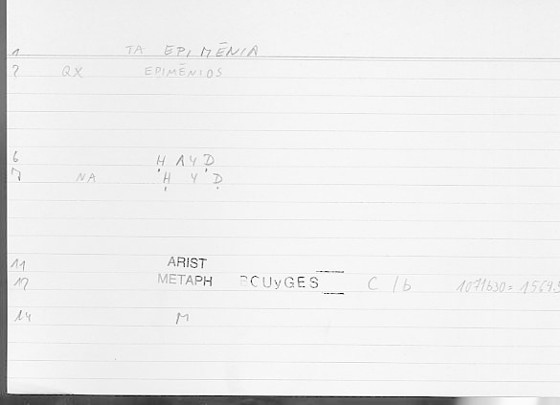 1 TA EPIMĒNIA
2 QX EPIMĒNIOS
6 H A Y D
7 NA H Y D
11 ARIST
12 METAPH BCUyGES C 1b 1071b30=
14 M